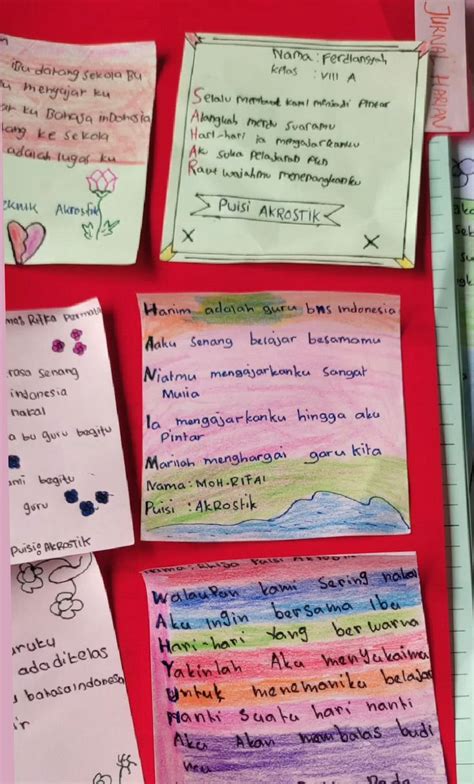 Ibu datang sekola Bu
mengajar ku
ku Bahasa indonesia
ke sekola
adalah tugas ku
Akrostik
Nama : Ferdiansyah
Kelas : VIII A
Selalu membuat kami menjadi Pintar
Alangkah merdu suaramu
Hari-hari ia mengajarkanku
Aku suka pelajaran
Raut wajahmu menenangkanku
PUISI AKROSTIK
JURNAL HARIAN
Rifka
rasa senang
indonesia
nakal
a bu guru begitu
begitu
guru
Puisi: AKROSTIK
Hanim adalah guru bns indonesia
Aaku senang belajar besamamu
Niatmu mengajarkanku sangat
Mulia
Ia mengajarkanku hingga aku
Pintar
Marilah menghargai guru kita
Nama : MOH. RIFAI
Puisi : AKROStik
ada dikelas
bahasa indonesia
Walaupon kami sering nakal
Aku ingin bersama Ibu
Hari-hari yang berwarna
Yakinlah Aku menyukaimu
Untuk menemaniku belajar
Nanti suatu hari nanti
Aku Akan membalas budi
mu